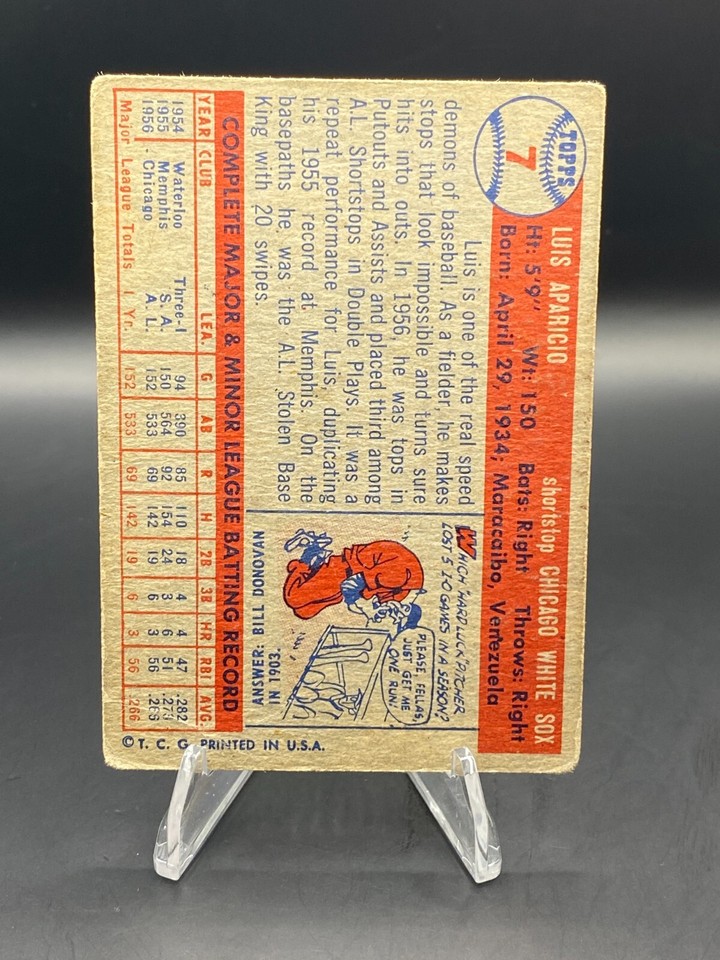 TOPPS
7
LUIS APARICIO
shortstop CHICAGO WHITE SOX
Ht: 5'9" Wt: 150 Bats: Right Throws: Right
Born: April 29, 1934; Maracaibo, Venezuela
Luis is one of the real speed
demons of baseball. As a fielder, he makes
stops that look impossible and turns sure
hits into outs. In 1956, he was tops in
Putouts and Assists and placed third among
A.L. Shortstops in Double Plays. It was a
repeat performance for Luis, duplicating
his 1955 record at Memphis. On the
basepaths he was the A.L. Stolen Base
King with 20 swipes.
WHICH HARD LUCK PITCHER
LOST 5 1-0 GAMES IN A SEASON?
PLEASE, FELLAS,
JUST GET ME
ONE RUN!
ANSWER: BILL DONOVAN
IN 1903.
COMPLETE MAJOR & MINOR LEAGUE BATTING RECORD
YEAR CLUB LEA. G AB R H 2B 3B HR RBI AVG.
1954 Waterloo Three-I 94 390 85 110 18 4 4 47 .282
1955 Memphis S. A. 150 564 92 154 24 3 6 51 .273
1956 Chicago A. L. 152 533 69 142 19 6 3 56 .266
Major League Totals 1 Yr. 152 533 69 142 19 6 3 56 .266
© T. C. G. PRINTED IN U.S.A.